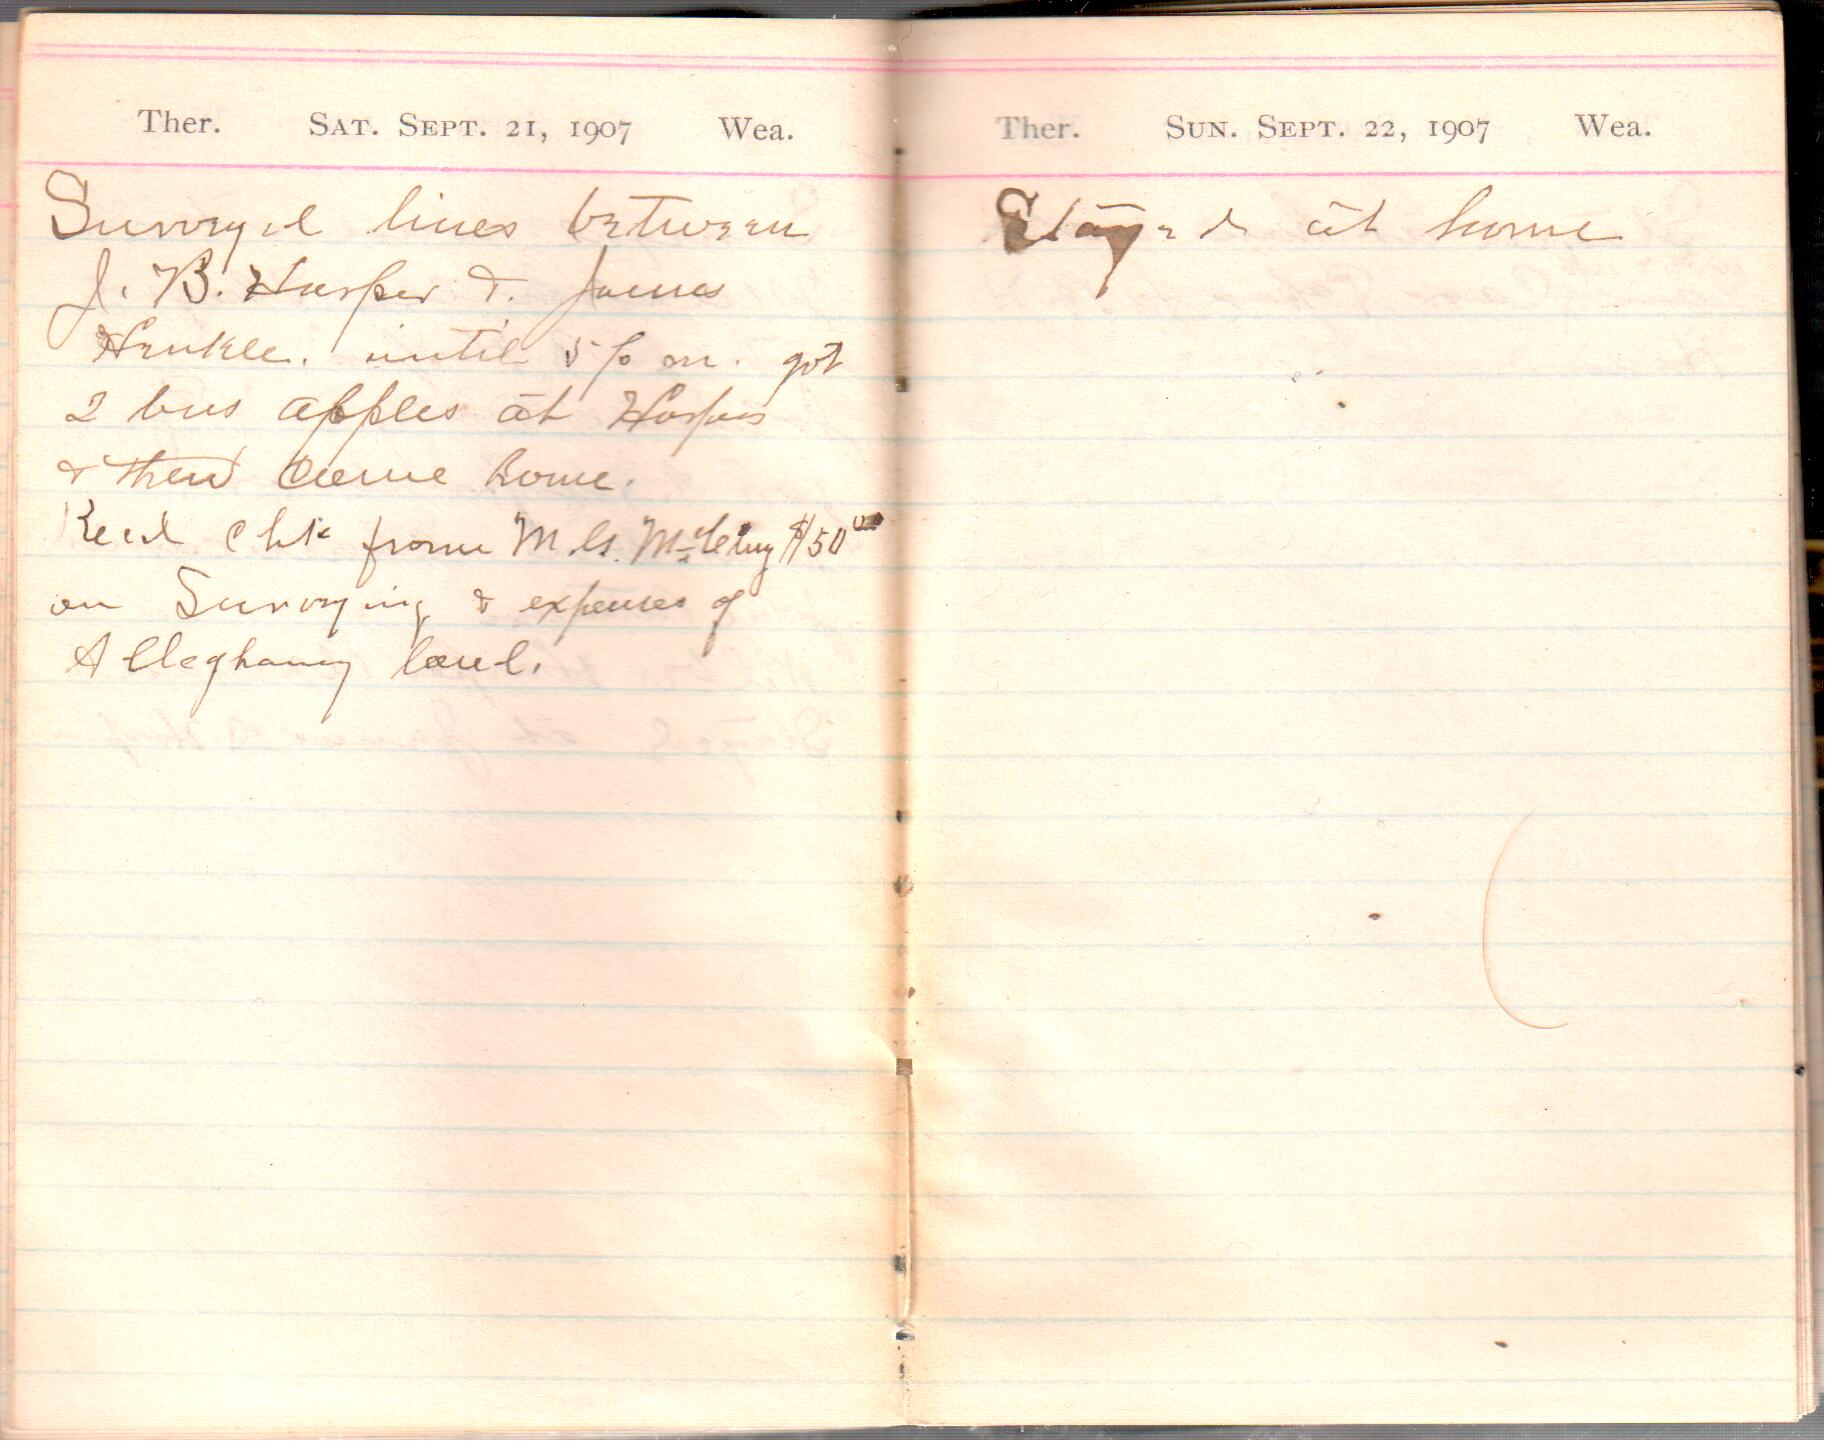 Ther. SAT. SEPT. 21, 1907 Wea.
Surveyed lines between
J. B. Harper & James
Henkle. until 5 p m. got
2 bus apples at Harpers
& then came home.
Recd Chk from M. G. $50 00
on Surveying & expenses of
Alleghany land.
Ther. SUN. SEPT. 22, 1907 Wea.
Stayed at home